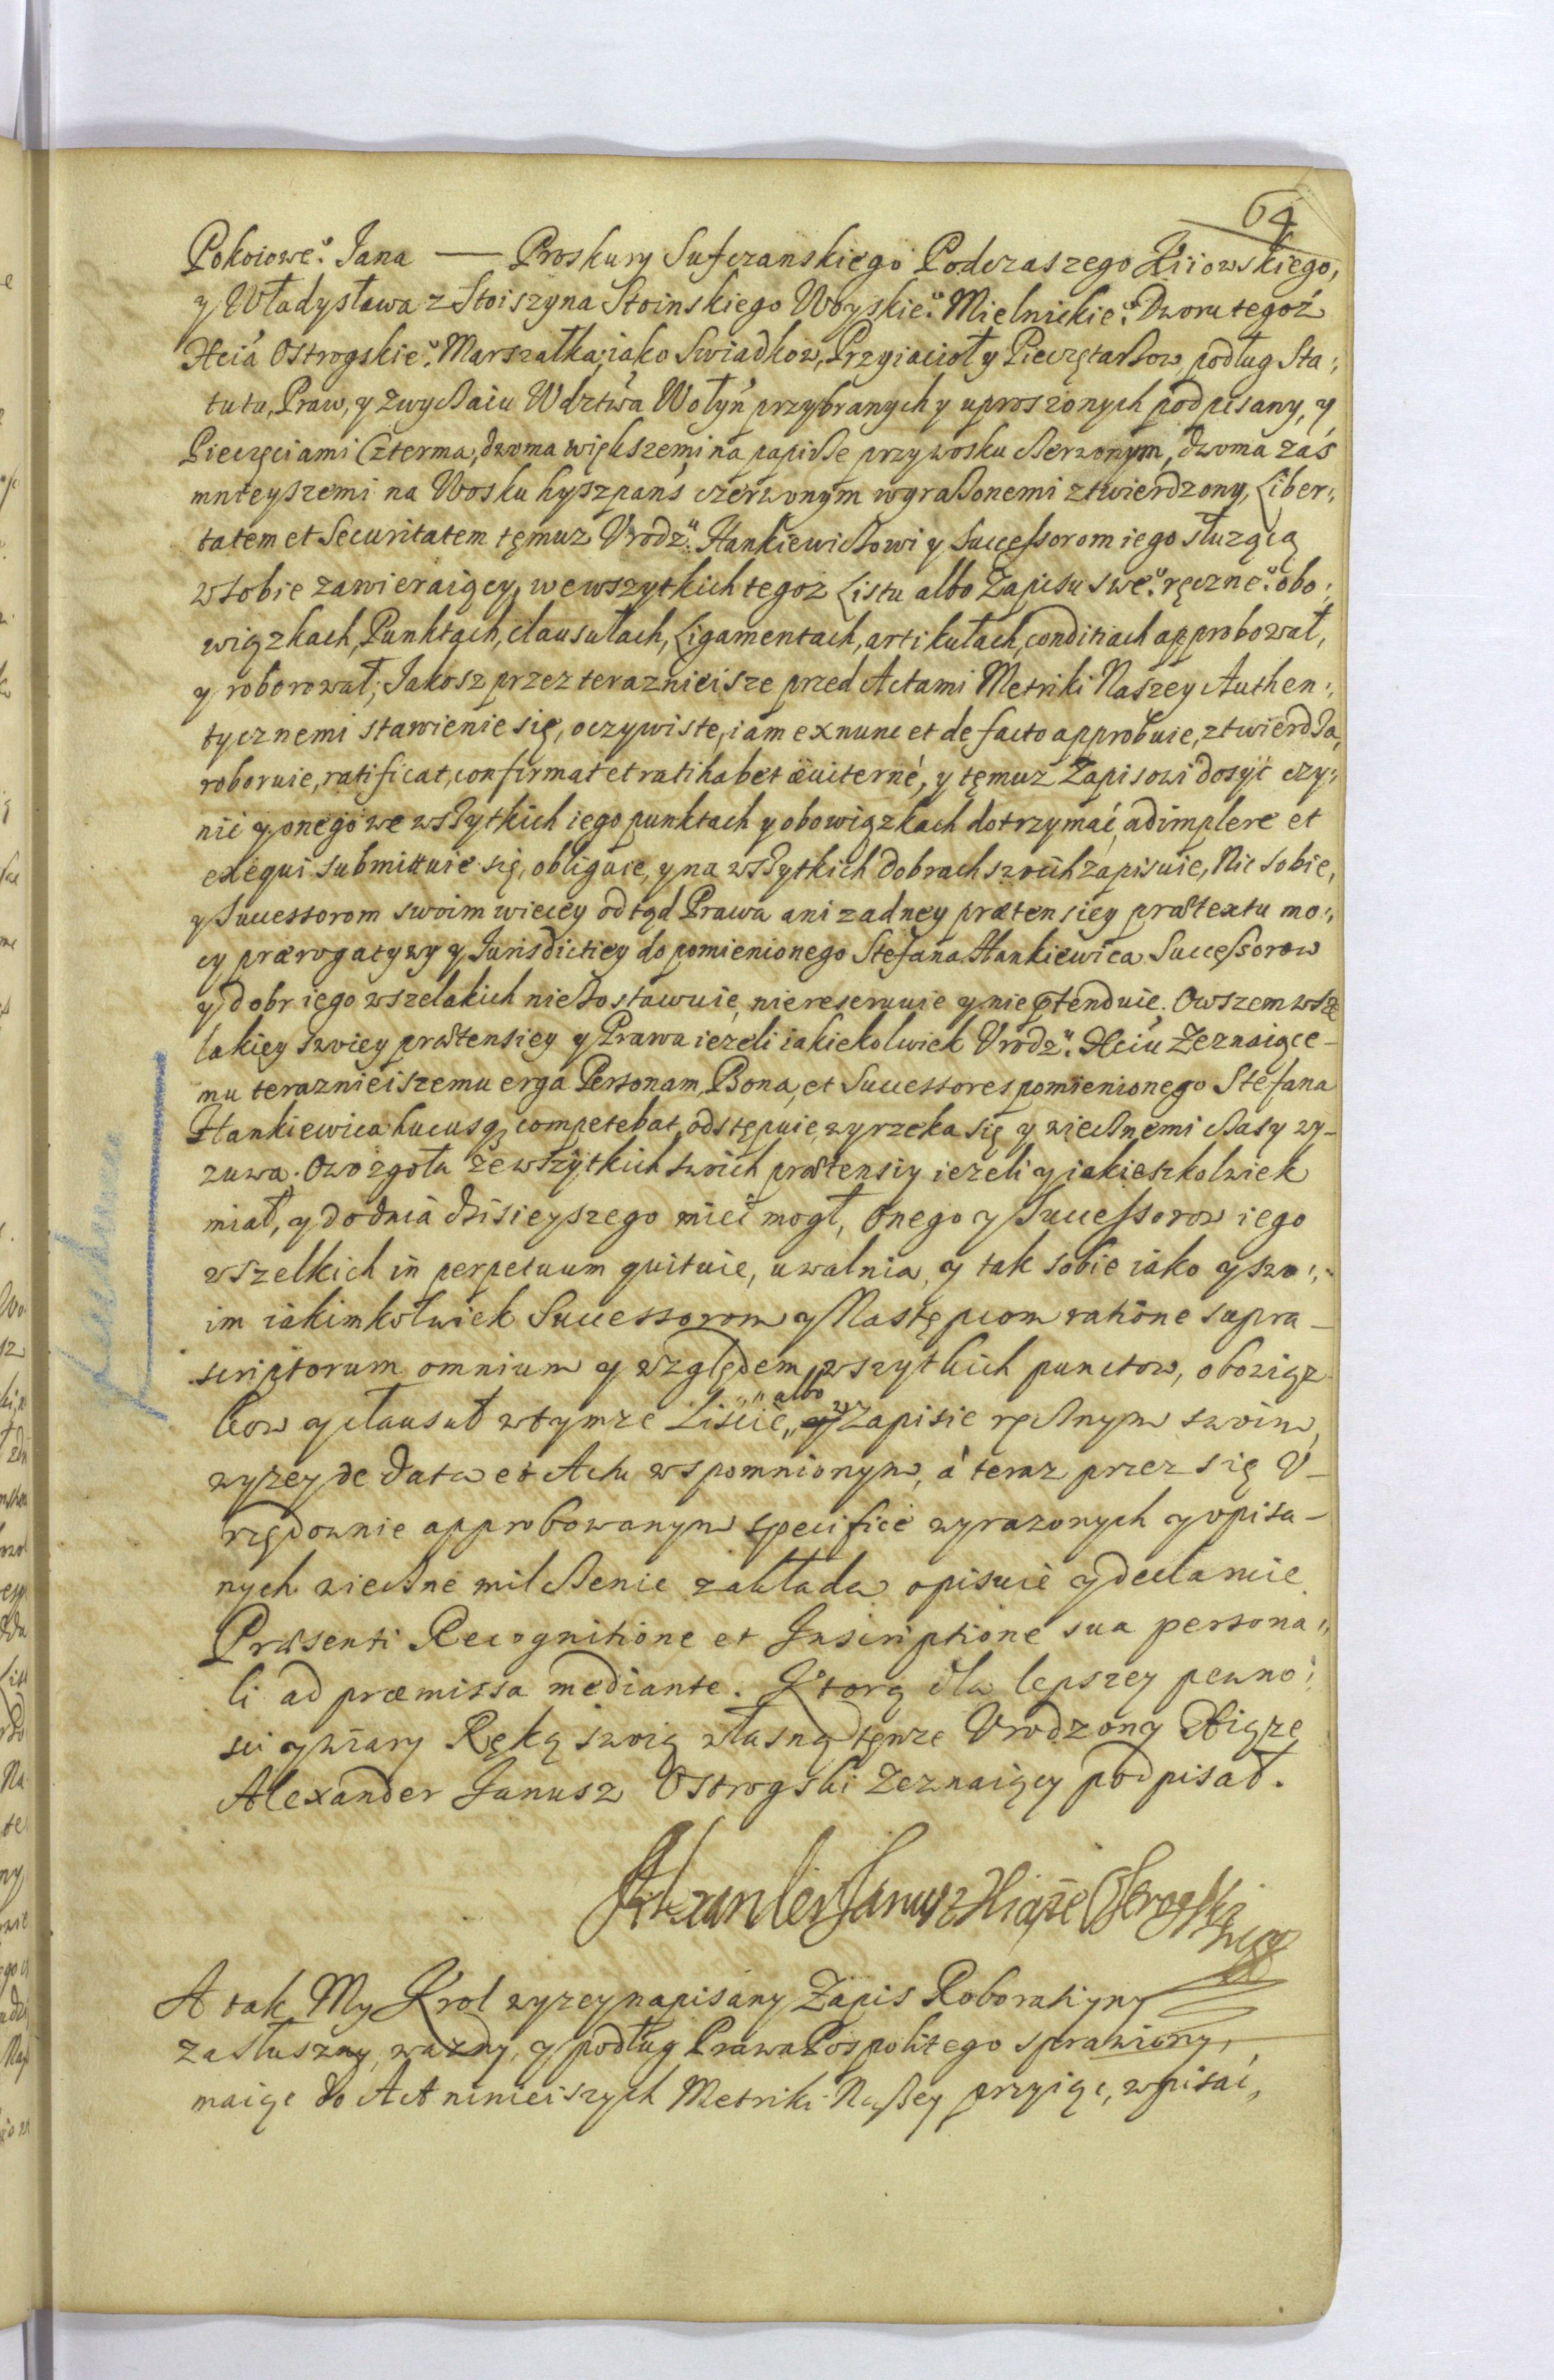 64
Pokoiowe⁰: Jana — Proskury Sufczanskiego Podczaszego Kiiowskiego,
y Władysława z Stoiszyna Stoinskiego Woyskie⁰: Mielnickie⁰: Dworu tegoż
Xcia Ostrogskie⁰: Marszałka, iako Swiadkow, Przyiacioł y Pieczętarßow, podług Sta:,
tutu, Praw, y Zwyßaiu Wdztwa Wołyń przybranych y uproszonych podpisany, y
Pieczęciami Czterma, dwoma większemi na papiße przy wosku ßerwonym, dwoma zaś
mnieyszemi na Wosku hyszpańs czerwonym wyraßonemi ztwierdzony, Liber:,
tatem et Securitatem tęmuz Vrodzᵘ: Hankiewißowi y Successorom iego służącą
w sobie zawieraiący, we wszytkich tegoż Listu albo Zapisu swe⁰: ręczne⁰: obo:,
wiązkach, Punktach, clausułach, Ligamentach, artikułach, conditiach approbował,
y roborował; Jakosz przez teraznieisze przed Actami Metriki Naszey Authen:,
tycznemi stawienie się, oczywiste, iam ex nunc et de facto approbuie, ztwierdßa,
roboruie, ratificat, confirmat et ratihabet æuiternè, y tęmuż Zapisowi dosyć czy:,
nić y onego we wßytkich iego punktach y obowiązkach dotrzymać, adimplere et
exequi submittuie się, obliguie, y na wßytkich dobrach swoich zapisuie, Nic sobie,
y Successorom swoim wiecey odtąd Prawa ani zadney prætensiey prætextu mo:,
cy prærogatywy y Jurisdictiey do pomienionego Stefana Hankiewica Successorow
y dobr iego wszelakich nie zostawuie, nie reserwuie y nie prtenduie. Owszem wsze
lakiey swoiey prætensiey y Prawa iezeli iakiekolwiek Vrodzᵘ: Xciu Zeznaiące-
mu teraznieiszemu erga Personam, Bona, et Successores pomienionego Stefana
Hankiewica hucusq; competebat, odstępuie, wyrzeka się y wießnemi ßasy wy-
zuwa. Owo zgoła ze wszytkich swoich prætensiy iezeli y iakieszkolwiek
miał, y do dnia dzisieyszego mieć mogł, Onego y Successorow iego
wszelkich in perpetuum quituie, uwalnia, y tak sobie iako y swo:,
im iakimkolwiek Successorom y Następcom ratione supra-
scriptorum omnium y względem wszytkich punctow, obowiąz
kow y clausuł w tymze Liście, albo w Zapisie ręßnym swoim,
wyzey de data et Actu wspomnionym, á teraz przez się V-
rzędownie approbowanym specificè wyrazonych y opisa-
nych wießne milßenie zakłada opisuie y declaruie.
Præsenti Recognitione et Inscriptione sua persona:,
li ad præmissa mediante. Ktorą dla lepszey pewno:,
sci y wiary Ręką swoią własną tęnze Vrodzony Xiąze
Alexander Janusz Ostrogski Zeznaiący podpisał.
Alexander Janusz Xiąże Ostrogski
A tak My Krol wyzey napisany Zapis Roboratiyny
za słuszny, wazny, y podług Prawa Pospolitego sprawiony,
maiąc do Act ninieiszych Metriki Naßey przyiąc, wpisać,